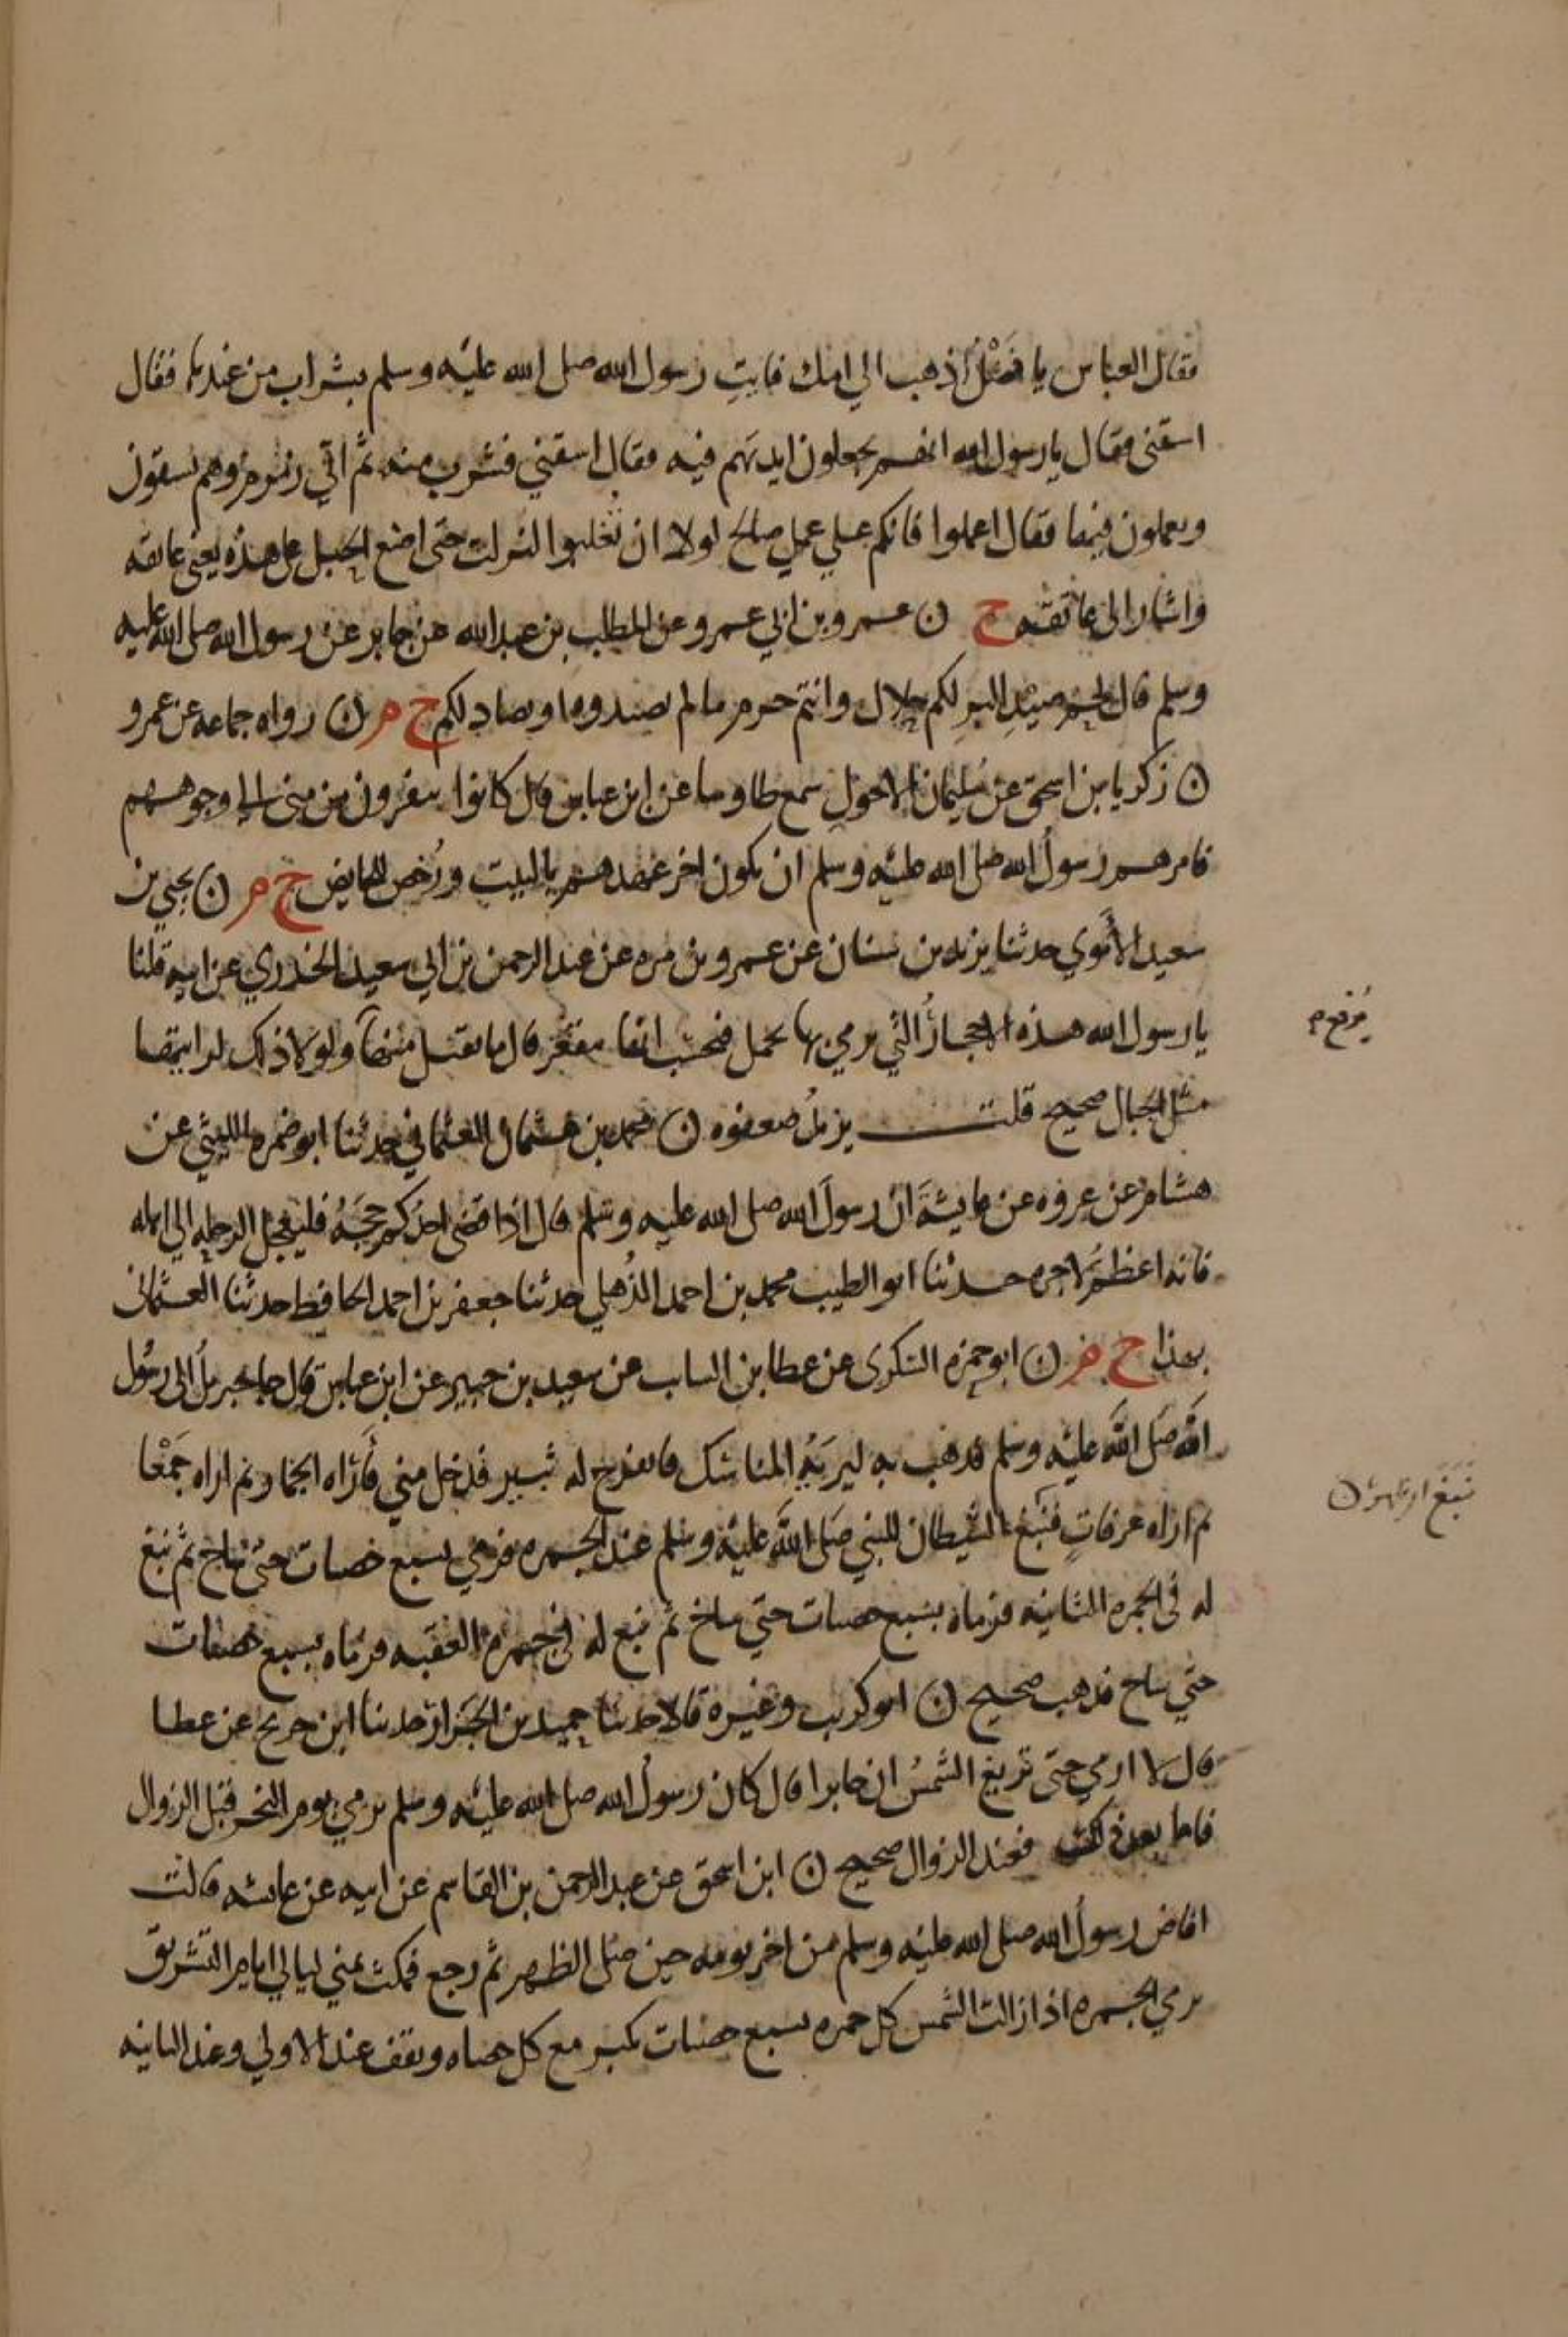 فقال العباس يا فضل اذهب الي امك فايت رسول الله صلى الله عليه وسلم بشراب من عندها فقال
اسقني فقال يا رسول الله انهم يجعلون ايديهم فيه فقال اسقني فشرب منه ثم اتي زمزم وهم يسقون
ويعملون فيها فقال اعملوا فانكم علي عمل صالح لولا ان تغلبوا لنزلت حتى اضع الحبل على هذه يعني عاتقه
واشار الى عاتقه خ ن عمرو بن ابي عمرو عن المطلب بن عبد الله عن جابر عن رسول الله صلى الله عليه
وسلم قال لحم صيد البر لكم حلال وانتم حرم ما لم تصيدوه او يصاد لكم خ م ن رواه جماعه عن عمرو
ن زكريا بن اسحق عن سليمان الاحول سمع طاوسا عن ابن عباس قال كانوا ينفرون من منى الى وجوههم
فامرهم رسول الله صلى الله عليه وسلم ان يكون اخر عهدهم بالبيت ورخص للحايض خ م ن يحيي بن
سعيد الاموي حدثنا يزيد بن سنان عن عمرو بن مره عن عبد الرحمن بن ابي سعيد الخدري عن ابيه قلنا
يا رسول الله هذه الاحجار التي يرمي بها تحمل فنحسب انها تنقعر قال ما تقبل منها ولولا ذلك لرايتها
مثل الجبال صحيح قلت يزيد ضعفوه ن محمد بن عثمان العثماني حدثنا ابو ضمره الليثي عن
هشام عن عروه عن عايشة ان رسول الله صلى الله عليه وسلم قال اذا قضى احدكم حجه فليعجل الرحله الي اهله
فانه اعظم لاجره حدثنا ابو الطيب محمد بن احمد الذهلي حدثنا جعفر بن احمد الحافظ حدثنا العثماني
بهذا خ م ن ابو حمزه السكرى عن عطا بن الساب عن سعيد بن جبير عن ابن عباس قال جا جبريل الى رسول
الله صلى الله عليه وسلم فذهب به ليريه المناسك فانفرج له ثبير فدخل مني فاراه الجمار ثم اراه جمعا
ثم اراه عرفات فنبغ الشيطان للنبي صلى الله عليه وسلم عند الجمره فرمي بسبع حصيات حتى ساخ ثم نبغ
له في الجمره الثانيه فرماه بسبع حصيات حتي ساخ ثم نبغ له في جمره العقبه فرماه بسبع حصيات
حتي ساخ فذهب صحيح ن ابو كريب وغيره قالا حدثنا حميد بن الخوار حدثنا ابن جريج عن عطا
قال لا ارمي حتى تزيغ الشمس ان جابرا قال كان رسول الله صلى الله عليه وسلم يرمي يوم النحر قبل الزوال
فاما بعد ذلك فعند الزوال صحيح ن ابن اسحق عن عبد الرحمن بن القاسم عن ابيه عن عايشه قالت
افاض رسول الله صلى الله عليه وسلم من اخر يومه حين صلى الظهر ثم رجع فمكث بمني ليالي ايام التشريق
يرمي الجمره اذا زالت الشمس كل جمره بسبع حصيات يكبر مع كل حصاه ويقف عند الاولي وعند الثانيه
نبغ اي ظهر ن